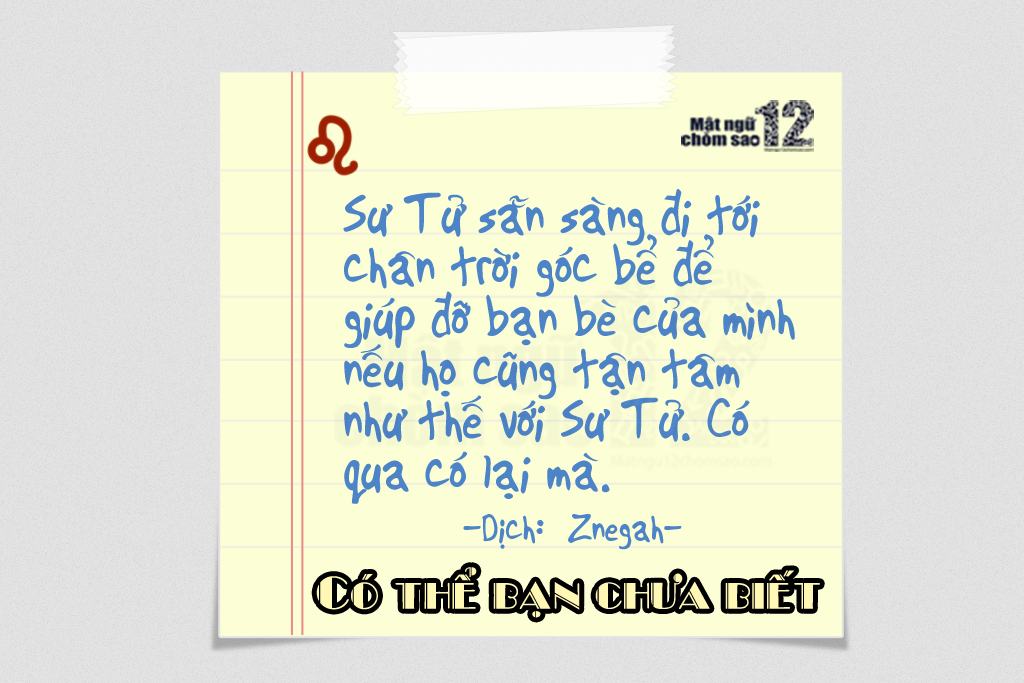 Mật ngữ 12
chòm sao
Sư Tử sẵn sàng đi tới
chân trời góc bể để
giúp đỡ bạn bè của mình
nếu họ cũng tận tâm
như thế với Sư Tử. Có
qua có lại mà.
-Dịch: Znegah-
Có thể bạn chưa biết